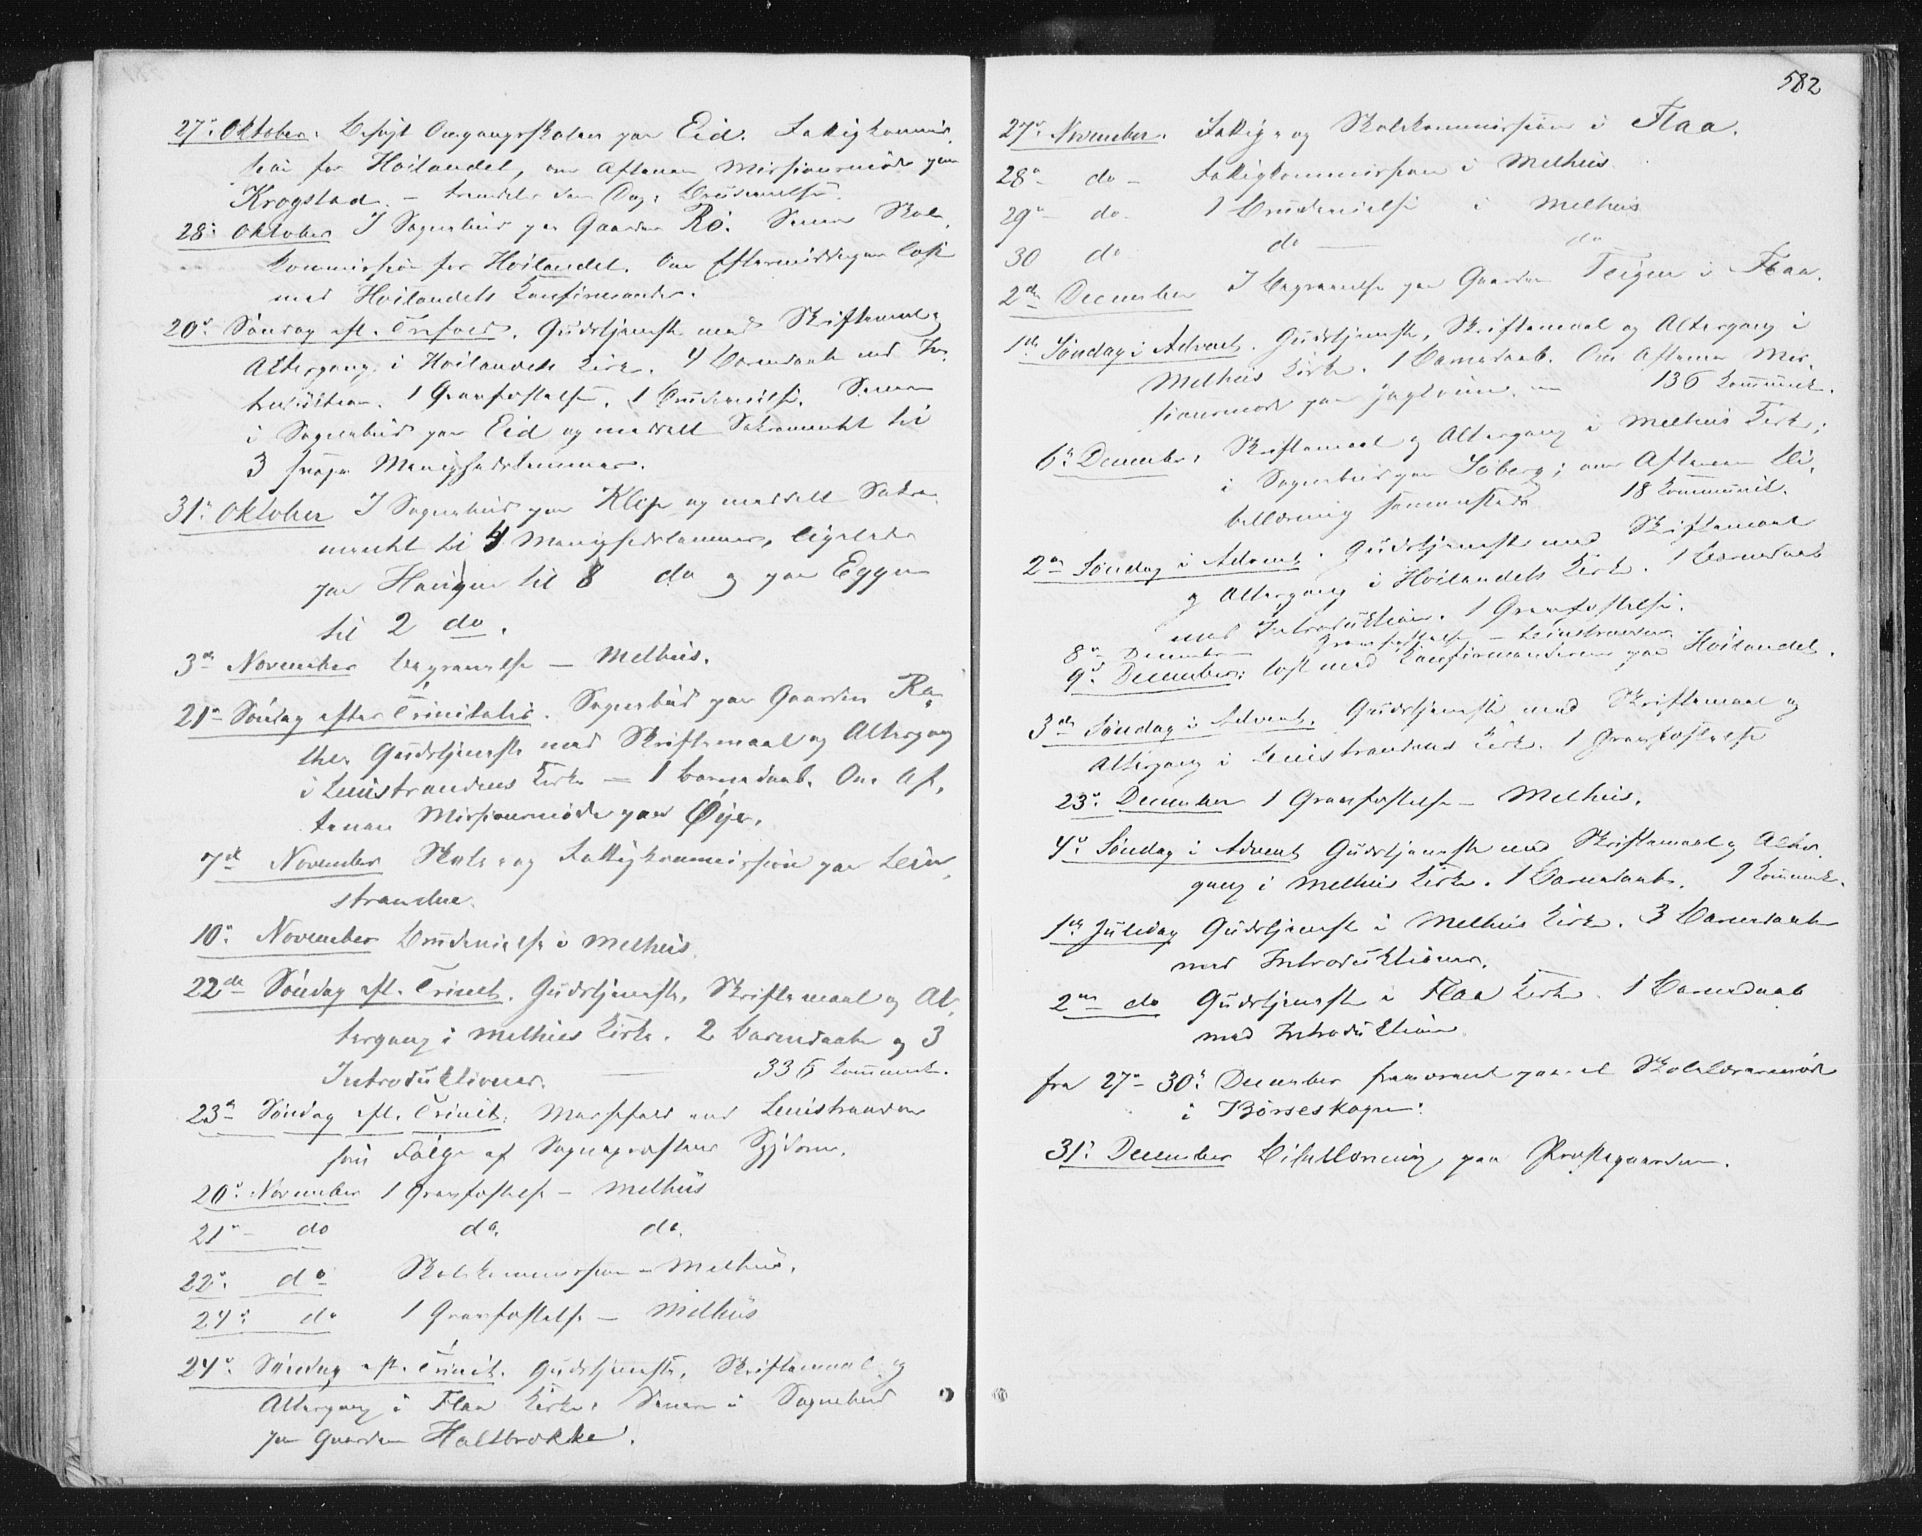 27de Oktober. Besøgt Omgangsskolen paa Eid. Fattigkommis,
sion for Høilandet, om Aftenen Missionsmøde paa
Krogstad. – samme Dag 1 Brudevielse.
28de Oktober I Sognebud paa Gaarden Rö. Senere Skole,
kommission for Høilandet. Om Eftermiddagen læst
med Høilandets Konfirmander.
20de Søndag eft. Trefold. Gudstjeneste med Skriftemaal og
Altergang i Høilandets Kirke. 4 Barnedaab med In,
troduktion. 1 Gravfæstelse. 1 Brudevielse. Senere
i Sognebud paa Eid og meddelt Sakramentet til
3 syge Menighedslemmer.
31te Oktober I Sognebud paa Klefs og meddelt Sakra,
mentet til 4 Menighedslemmer, ligeledes
paa Haugen til 8 do og paa Eggen
til 2 do.
3de November Begravelse – Melhus.
21de Søndag efter Trinitatis. Sognebud paa Gaarden Ra,
the. Gudstjeneste med Skriftemaal og Altergang
i Leinstrandens Kirke – 1 Barnedaab. Om Af,
tenen Missionsmøde paa Øye.
7de November Skole- og Fattigkommission paa Lein,
stranden.
10de November Brudevielse i Melhus.
22de Søndag eft. Trinit. Gudstjeneste, Skriftemaal og Al,
tergang i Melhus Kirke. 2 Barnedaab og 3
Introduktioner. — 336 Kommunik.
23de Søndag eft. Trinit. Messefald ved Leinstranden
som Følge af Sognepræstens Sygdom.
20de November 1 Gravfæstelse – Melhus
21de – do do. do.
22de. do Skolekommission – Melhus.
24de do 1 Gravfæstelse – Melhus
24de Søndag eft. Trinit. Gudstjeneste, Skriftemaal og
Altergang i Flaa Kirke. Senere i Sognebud
paa Gaarden Haltbrække.
582
27de November. Fattig- og Skolekommission i Flaa.
28de do – Fattigkommission i Melhus.
29de – do. 1 Brudevielse i Melhus
30 do do — do
2den December I Begravelse paa Gaarden Teigen i Flaa.
1ste Søndag i Advent. Gudstjeneste, Skriftemaal og Altergang i
Melhus Kirke. 1 Barnedaab. Om Aftenen Mis,
sionsmøde paa Jagtøien. — 136 Kommunik.
6te December. Skriftemaal og Altergang i Melhus Kirke;
i Sognebud paa Søberg; om Aftenen Bi,
bellæsning sammesteds 18 Kommunik.
2den Søndag i Advent. Gudstjeneste med Skriftemaal
og Altergang i Høilandets Kirke. 1 Barnedaab
med Introduktion. 1 Gravfæstelse.
8de December Gravfæstelse – Leinstranden.
9de December: læst med Konfirmanderne paa Høilandet.
3die Søndag i Advent. Gudstjeneste med Skriftemaal og
Altergang i Leinstrandens Kirke. 1 Gravfæstelse
23de December 1 Gravfæstelse – Melhus.
4de Søndag i Advent Gudstjeneste med Skriftemaal og Alter,
gang i Melhus Kirke. 1 Barnedaab. 9 Kommunik.
1ste Juledag Gudstjeneste i Melhus Kirke. 3 Barnedaab
med Introduktioner.
2den do Gudstjeneste i Flaa Kirke. 1 Barnedaab
med Introduktion
fra 27de – 30te December fraværende paa et Skolelærermøde
i Børseskogn.
31te December Bibellæsning paa Præstegaarden.